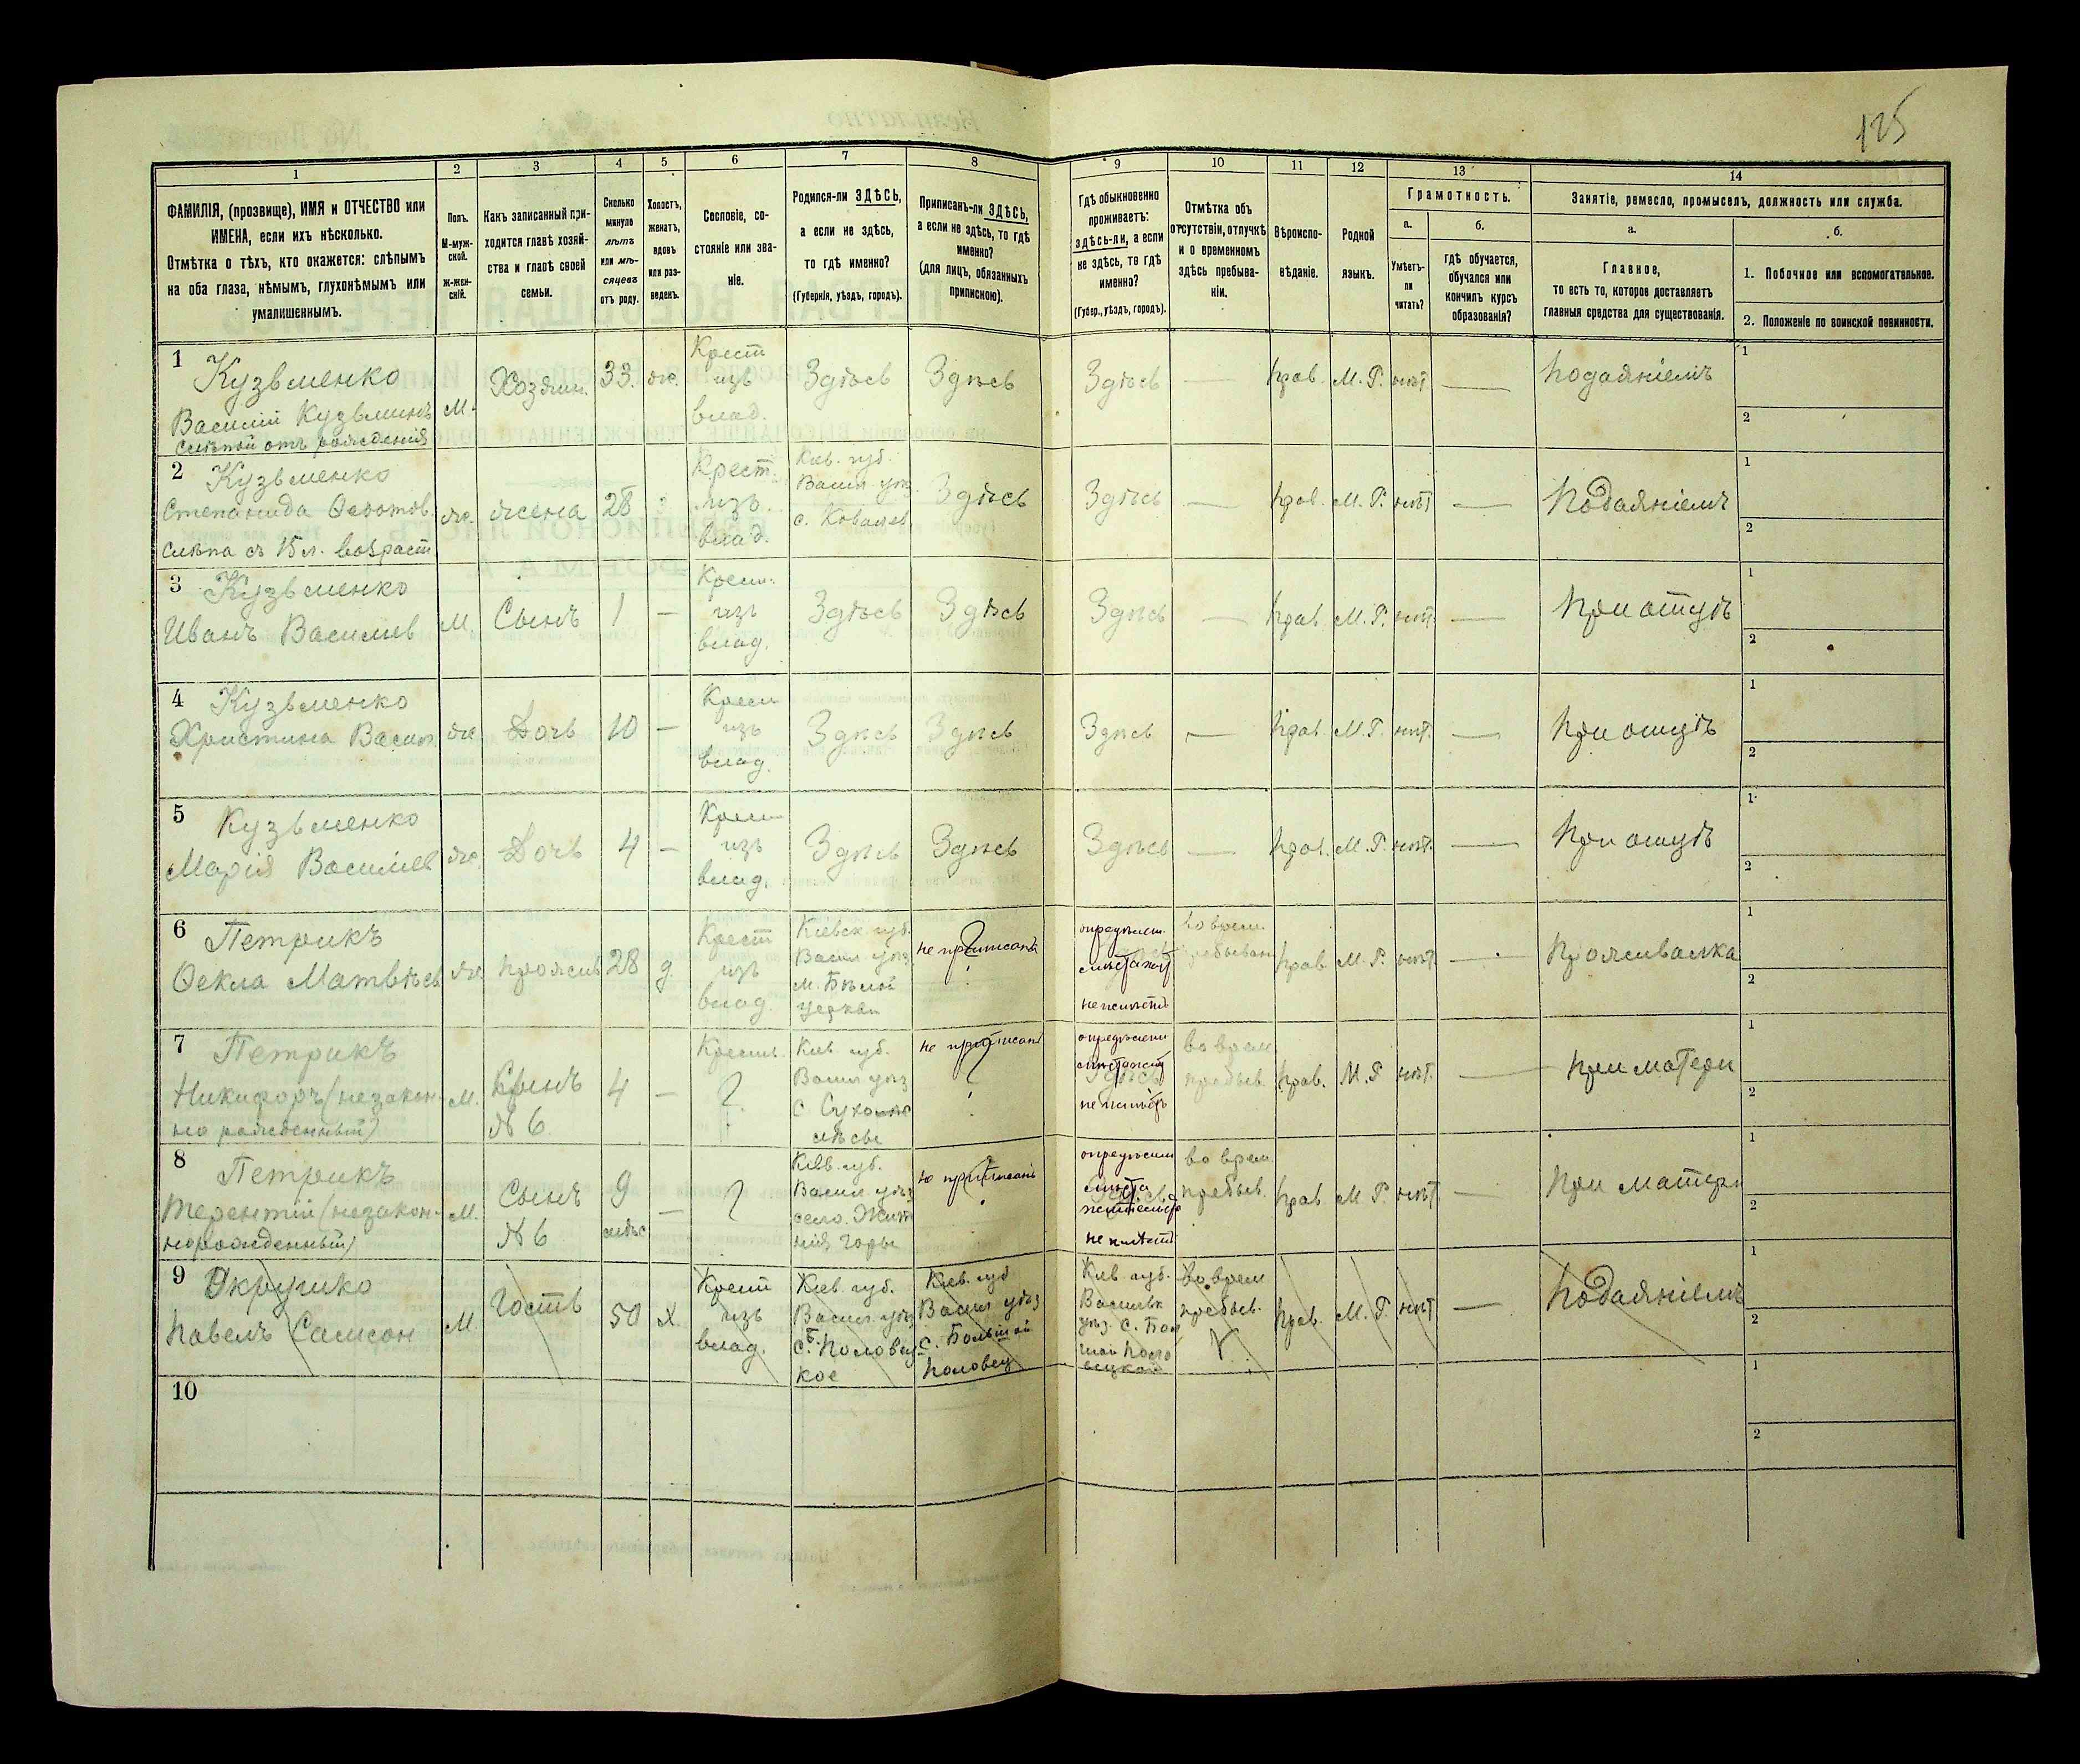 125
1
2
3
4
5
6
7
8
9
10
11
12
13
14
ФАМИЛІЯ, (прозвище), ИМЯ и ОТЧЕСТВО или
ИМЕНА, если ихъ нѣсколько.
Отмѣтка о тѣхъ, кто окажется: слѣпымъ
на оба глаза, нѣмымъ, глухонѣмымъ или
умалишеннымъ.
Полъ.
М-муж-
ской.
Ж-жен-
скій.
Какъ записанный при-
ходится главѣ хозяй-
ства и главѣ своей
семьи.
Сколько
минуло
лѣтъ
или мѣ-
сяцевъ
отъ роду.
Холостъ,
женатъ,
вдовъ
или раз-
веденъ.
Сословіе, со-
стояніе или зва-
ніе.
Родился-ли ЗДѢСЬ,
а если не здѣсь,
то гдѣ именно?
(Губернія, уѣздъ, городъ).
Приписанъ-ли ЗДѢСЬ,
а если не здѣсь, то гдѣ
именно?
(для лицъ, обязанныхъ
припискою).
Гдѣ обыкновенно
проживаетъ:
здѣсь-ли, а если
не здѣсь, то гдѣ
именно?
(Губер., уѣздъ, городъ).
Отмѣтка объ
отсутствіи, отлучкѣ
и о временномъ
здѣсь пребыва-
ніи.
Вѣроиспо-
вѣданіе.
Родной
языкъ.
Грамотность.
а.
Умѣетъ-
ли
читать?
б.
гдѣ обучается,
обучался или
кончилъ курсъ
образованія?
Занятіе, ремесло, промыселъ, должность или служба.
а.
Главное,
то есть то, которое доставляетъ
главныя средства для существованія.
б.
1. Побочное или вспомогательное.
2. Положеніе по воинской повинности.
1 Кузьменко
Василій Кузьминъ
слѣпой отъ рожденія
М.
Хозяин.
33.
же.
Крест
изъ
влад.
Здѣсь
Здѣсь
Здѣсь
—
прав.
М. Р.
нѣт
—
подаяніемъ
1
2
2 Кузьменко
Степанида
слѣпа съ 15 л. возраст
же.
жена
28
Крест.
изъ
влад.
Кіев. губ.
Васил уѣз
с. Ковалев
Здѣсь
Здѣсь
—
прав.
М. Р.
нѣт
—
Подаяніемъ
1
2
3 Кузьменко
Иванъ Васильев
М.
Сынъ
1
—
Крест.
изъ
влад.
Здѣсь
Здѣсь
Здѣсь
—
прав.
М. Р.
нѣт.
—
При отцѣ
1
2
4 Кузьменко
Христина Васил
же
Дочь
10
—
Крест
изъ
влад.
Здѣсь
Здѣсь
Здѣсь
—
прав.
М. Р.
нѣт.
—
При отцѣ
1
2
5 Кузьменко
Марія Василіев
же.
Дочь
4
—
Крест
изъ
влад.
Здѣсь
Здѣсь
Здѣсь
—
прав.
М. Р.
нѣт.
—
При отцѣ
1
2
6 Петрикъ
Ѳекла Матвѣев
же
28
д.
Крест
изъ
влад.
Кіевск. губ.
Васил уѣз
м. Бѣлой
Церкви
не приписана
?
во врем.
прав.
М. Р.
нѣт.
—
Проживалка
1
2
7 Петрикъ
Никифоръ (незакон-
но рожденный)
М.
Сынъ
№ 6
4
—
Крест.
?
Кіев. губ.
Васил уѣз
не приписанъ
?
во врем
пребыв.
прав.
М. Р
нѣт.
—
При матери
1
2
8 Петрикъ
Терентій (незакон-
норожденный)
М.
Сынъ
№ 6
9
мѣс
—
?
Кіев. губ.
Васил. уѣз
село. Жит
нія горы
не приписанъ
?
не имѣетъ
во врем.
пребыв.
прав
М Р.
нѣт
—
При матери
1
2
9
Павелъ Самсон
М.
Гость
50
х
Крест
изъ
влад.
Кіев губ.
Васил. уѣз
с. Б. Половец-
кое
Кіев. губ
Васил уѣз
с. Большой
Половец
Кіев губ.
Васильк
уѣз. с. Бол
шой Поло
вецкой
во врем
пребыв.
прав.
М. Р.
нѣт
—
Подаяніемъ
1
2
10
1
2